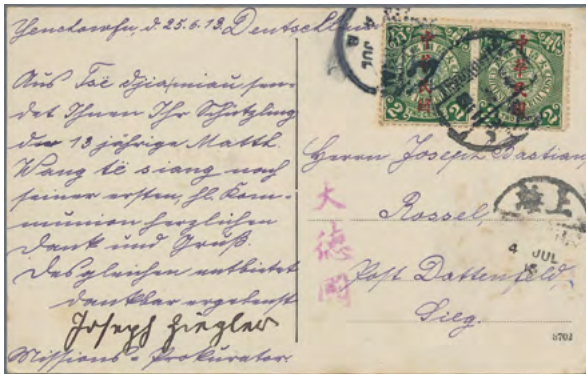 Yenchowfu, d. 25.6.13. Deutschland
Aus Tsë djia miau sen-
det Ihnen Ihr Schützling
der 13 jährige Matth.
Wang të siang nach
seiner ersten, hl. Kom-
munion herzlichen
Dank und Gruß.
Desgleichen entbietet
dankbar ergebenst
Joseph Ziegler
Missions-Prokurator.
中華民國
中華民國
2
2
4 JUL
Herrn Joseph Bastian,
Rossel,
Post Dattenfeld,
Sieg.
大德國
上海
4 JUL
8702